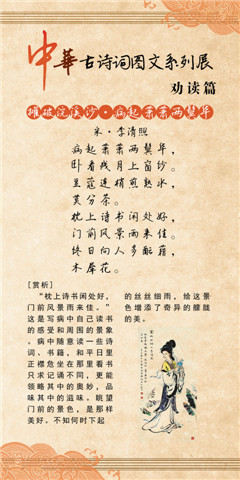 中華古诗词图文系列展
劝读篇
摊破浣溪沙·病起萧萧两鬓华
宋·李清照
病起萧萧两鬓华，
卧看残月上窗纱。
豆蔻连梢煎熟水，
莫分茶。
枕上诗书闲处好，
门前风景雨来佳。
终日向人多酝藉，
木犀花。
[赏析]
“枕上诗书闲处好，
门前风景雨来佳。”
这是写病中自己读书
的感受和周围的景象
。病中随意读一些诗
词、书籍，和平日里
正襟危坐在那里看书
只求记诵不同，更能
领略其中的奥妙，品
味其中的滋味。眺望
门前的景色，是那样
美好。不知何时下起
的丝丝细雨，给这景
色增添了奇异的朦胧
的美。